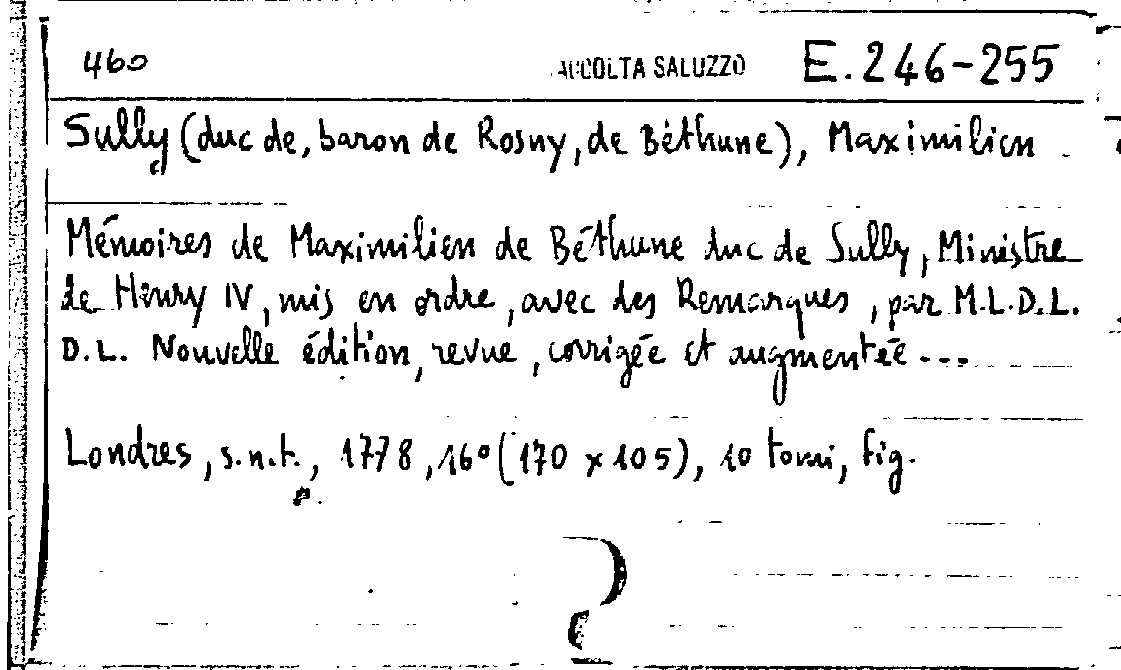 460 RACCOLTA SALUZZO E.246-255
Sully (duc de, baron de Rosny, de Béthune), Maximilien
Mémoires de Maximilien de Béthune duc de Sully, Ministre
de Henry IV, mis en ordre, avec des Remarques, par M.L.D.L.
D.L. Nouvelle édition, revue, corrigée et augmentée ---
Londres, s.n.t., 1778, 16° (170 x 105), 10 tomi, fig.
?